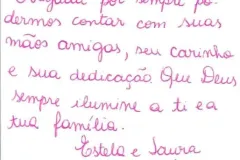 Obrigada por sempre po-
dermos contar com suas
mãos amigas, seu carinho
e sua dedicação. Que Deus
sempre ilumine a ti e a
tua família.
Estela e Laura